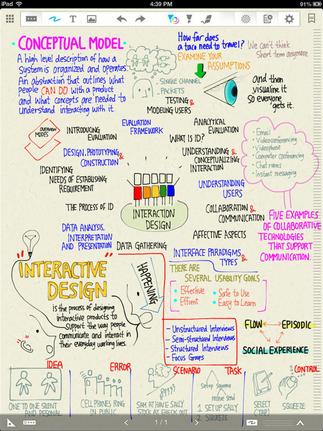 iPod
4:39 PM
91%
CONCEPTUAL MODEL
A high level description of how a
system is organized and operates.
An abstraction that outlines what
people CAN DO with a product
and what concepts are needed to
understand interacting with it.
How far does
a taxi need to travel?
EXAMINE YOUR
ASSUMPTIONS
We can't think
Short term
And then
visualize it
So everyone
gets it.
SINGLE CHANNEL
PACKETS
TESTING &
MODELING USERS
OVERVIEW
MODES
INTRODUCING
EVALUATION
EVALUATION
FRAMEWORK
ANALYTICAL
EVALUATION
WHAT IS ID?
DESIGN, PROTOTYPING, &
CONSTRUCTION
UNDERSTANDING &
CONCEPTUALIZING
INTERACTION
IDENTIFYING
NEEDS OF ESTABLISHING
REQUIREMENT
UNDERSTANDING
USERS
THE PROCESS OF ID
INTERACTION
DESIGN
COLLABORATION &
COMMUNICATION
DATA ANALYSIS,
INTERPRETATION
AND PRESENTATION
DATA GATHERING
AFFECTIVE ASPECTS
INTERFACE PARADIGMS &
TYPES
- Email
- Videoconferencing
- Videophone
- Computer conferencing
- Chat rooms
- Instant messaging
FIVE EXAMPLES
OF COLLABORATIVE
TECHNOLOGIES
THAT SUPPORT
COMMUNICATION.
THERE ARE
SEVERAL USABILITY GOALS
• Effective
• Efficient
• Safe to Use
• Easy to Learn
INTERACTIVE
DESIGN
is the process of designing
interactive products to
support the way people
communicate and interact in
their everyday working lives.
HAPPENING
- Unstructured Interviews
- Semi-structured Interviews
- Structured Interviews
- Focus Groups
FLOW
EPISODIC
SOCIAL EXPERIENCE
IDEA
ERROR
SCENARIO
TASK
CONTROL
ONE TO ONE SILENT
AND PERSONAL
CELL PHONES RING
IN PUBLIC
1. SET UP SALLY
2.
SELECT
SQUEEZE
1 / 1